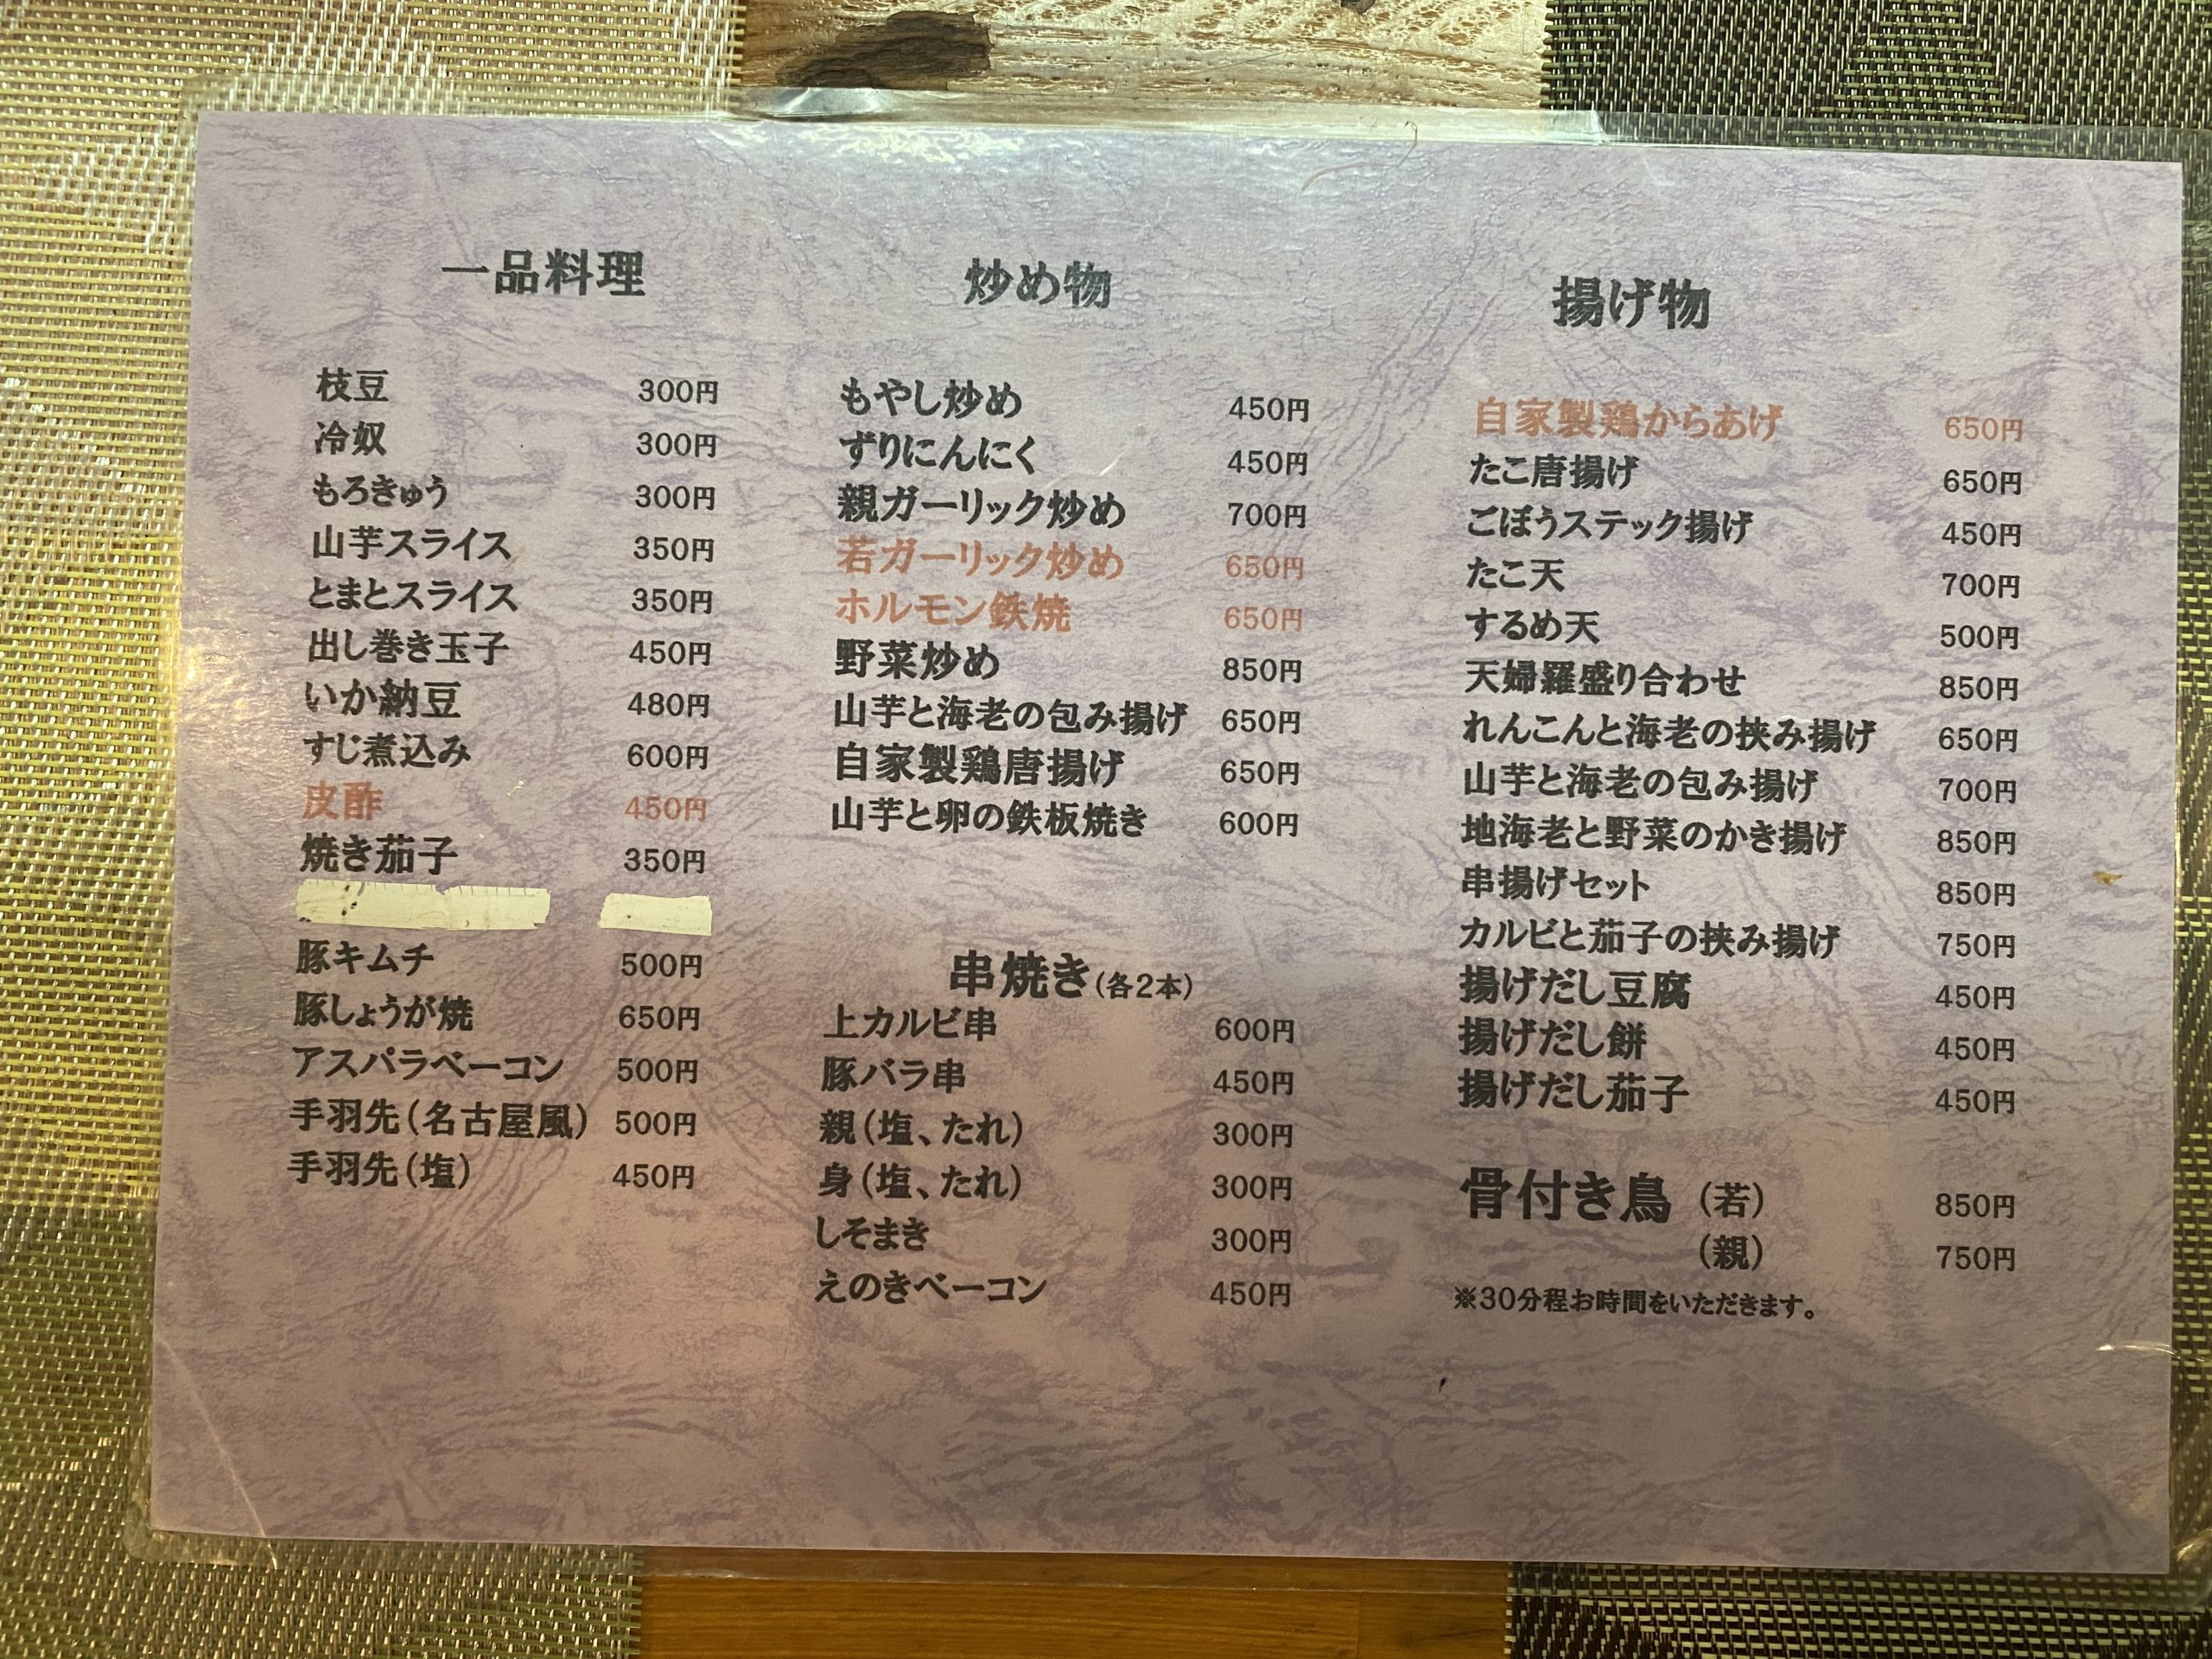 一品料理
枝豆 300円
冷奴 300円
もろきゅう 300円
山芋スライス 350円
とまとスライス 350円
出し巻き玉子 450円
いか納豆 480円
すじ煮込み 600円
皮酢 450円
焼き茄子 350円
豚キムチ 500円
豚しょうが焼 650円
アスパラベーコン 500円
手羽先(名古屋風) 500円
手羽先(塩) 450円
炒め物
もやし炒め 450円
ずりにんにく 450円
親ガーリック炒め 700円
若ガーリック炒め 650円
ホルモン鉄焼 650円
野菜炒め 850円
山芋と海老の包み揚げ 650円
自家製鶏唐揚げ 650円
山芋と卵の鉄板焼き 600円
串焼き(各2本)
上カルビ串 600円
豚バラ串 450円
親(塩、たれ) 300円
身(塩、たれ) 300円
しそまき 300円
えのきベーコン 450円
揚げ物
自家製鶏からあげ 650円
たこ唐揚げ 650円
ごぼうステック揚げ 450円
たこ天 700円
するめ天 500円
天婦羅盛り合わせ 850円
れんこんと海老の挟み揚げ 650円
山芋と海老の包み揚げ 700円
地海老と野菜のかき揚げ 850円
串揚げセット 850円
カルビと茄子の挟み揚げ 750円
揚げだし豆腐 450円
揚げだし餅 450円
揚げだし茄子 450円
骨付き鳥 (若) 850円
(親) 750円
※30分程お時間をいただきます。